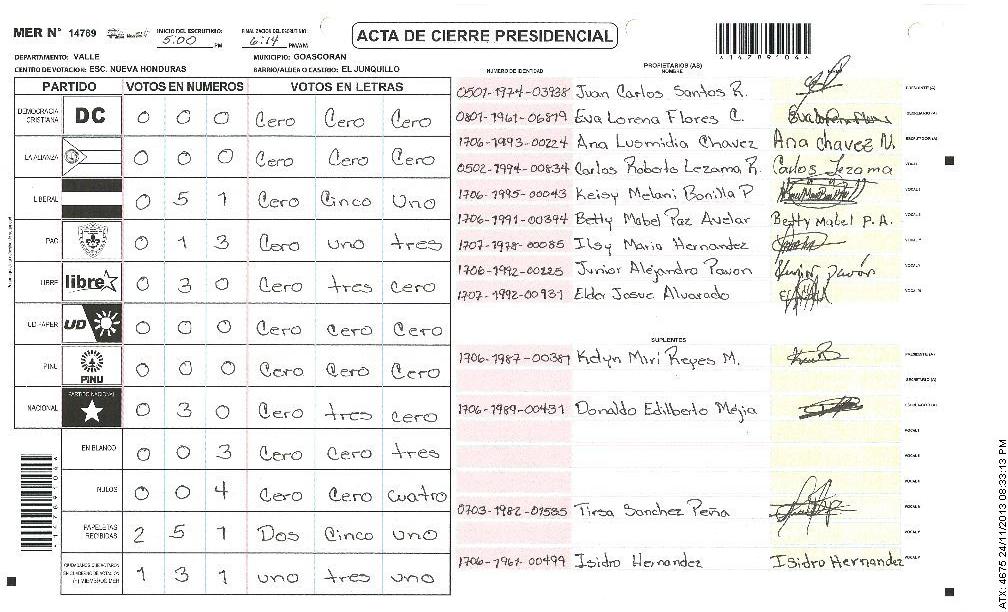 MER N° 14769 INICIO DEL ESCRUTINIO: 5:00 PM FINALIZACION DEL ESCRUTINIO: 6:14 PM/AM
ACTA DE CIERRE PRESIDENCIAL
DEPARTAMENTO: VALLE MUNICIPIO: GOASCORAN
CENTRO DE VOTACION: ESC. NUEVA HONDURAS BARRIO/ALDEA O CASERIO: EL JUNQUILLO
PARTIDO VOTOS EN NUMEROS VOTOS EN LETRAS
DEMOCRACIA CRISTIANA DC 0 0 0 Cero Cero Cero
LA ALIANZA 0 0 0 Cero Cero Cero
LIBERAL 0 5 1 Cero Cinco Uno
PAC 0 1 3 Cero uno tres
LIBRE libre 0 3 0 Cero tres cero
UD-FAPER UD 0 0 0 Cero cero Cero
PINU PINU 0 0 0 Cero Cero Cero
NACIONAL PARTIDO NACIONAL 0 3 0 Cero tres cero
EN BLANCO 0 0 3 Cero Cero tres
NULOS 0 0 4 Cero Cero cuatro
PAPELETAS RECIBIDAS 2 5 1 Dos Cinco uno
1 3 1 uno tres uno
NUMERO DE IDENTIDAD PROPIETARIOS (AS) NOMBRE
0501-1974-03938 Juan Carlos Santos R. PRESIDENTE (A)
0801-1961-06819 Eva Lorena Flores C. SECRETARIO (A)
1706-1993-00224 Ana Lusmidia Chavez Ana Chavez N. ESCRUTADOR (A)
0502-1994-00834 Carlos Roberto Lezama R. Carlos Lezama
1706-1995-00043 Keisy Melani Bonilla P
1706-1991-00394 Betty Mabel Paz Avelar Betty Mabel P. A.
1707-1978-00085 Ilsy Maria Hernandez
1706-1992-00225 Junior Alejandro Pavon Pavón
1707-1992-00931 Elder Josue Alvarado
SUPLENTES
1706-1987-00381 Kelyn Miri Reyes M. PRESIDENTE (A)
SECRETARIO (A)
1706-1989-00431 Donaldo Edilberto Mejia ESCRUTADOR (A)
0703-1982-01585 Tirsa Sanchez Peña
1706-1967-00499 Isidro Hernandez Isidro Hernandez
ATX: 4675 24/11/2013 08:33:13 PM